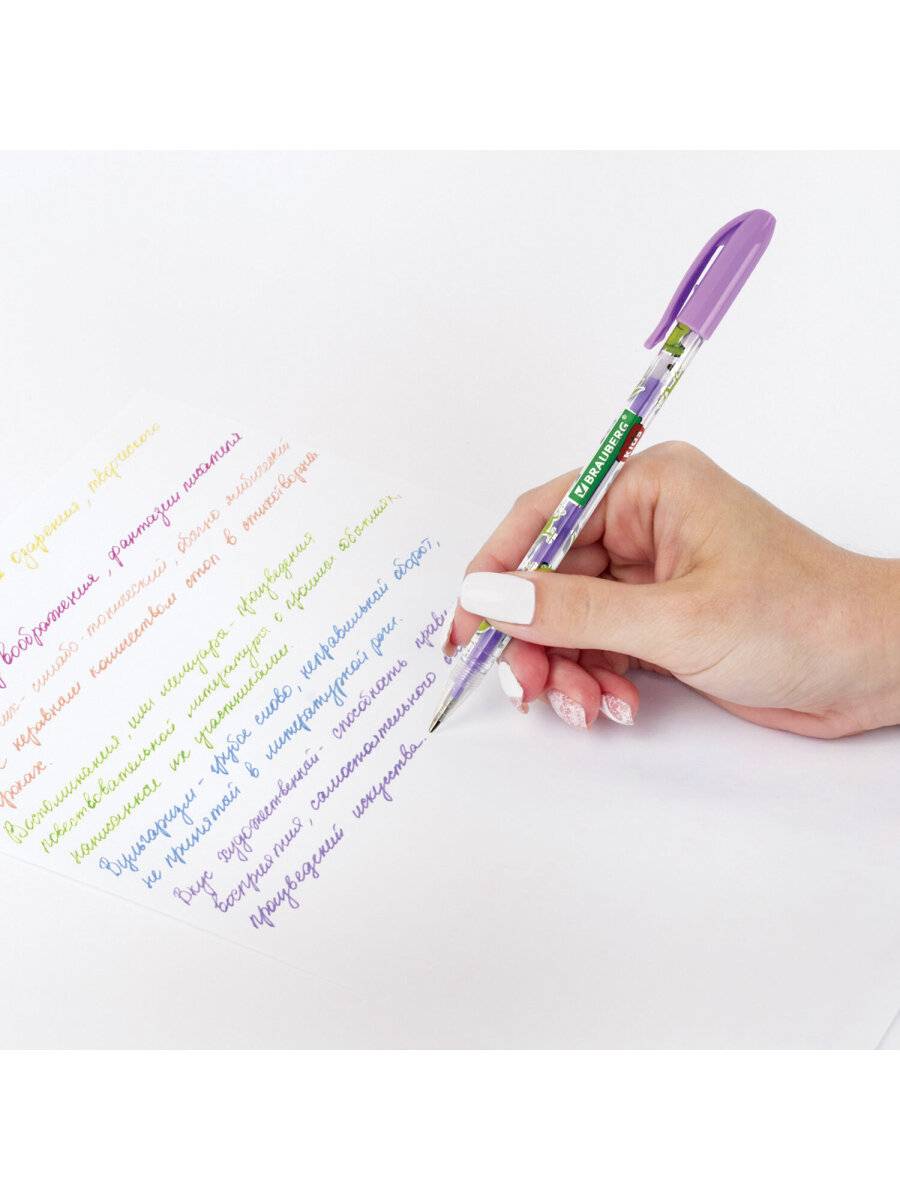 озарения, творческого
воображения, фантазии писателя
силлабо-тонический, обычно ямбический
с неравным количеством стоп в стихотворных
строках.
Воспоминания, или мемуары - произведения
повествовательной литературы о прошлых событиях,
написанное их участниками.
Вульгаризм - грубое слово, неправильный оборот,
не принятый в литературной речи.
Вкус художественный - способность прави
восприятия, самостоятельного
произведений искусства.
BRAUBERG®
KIDS